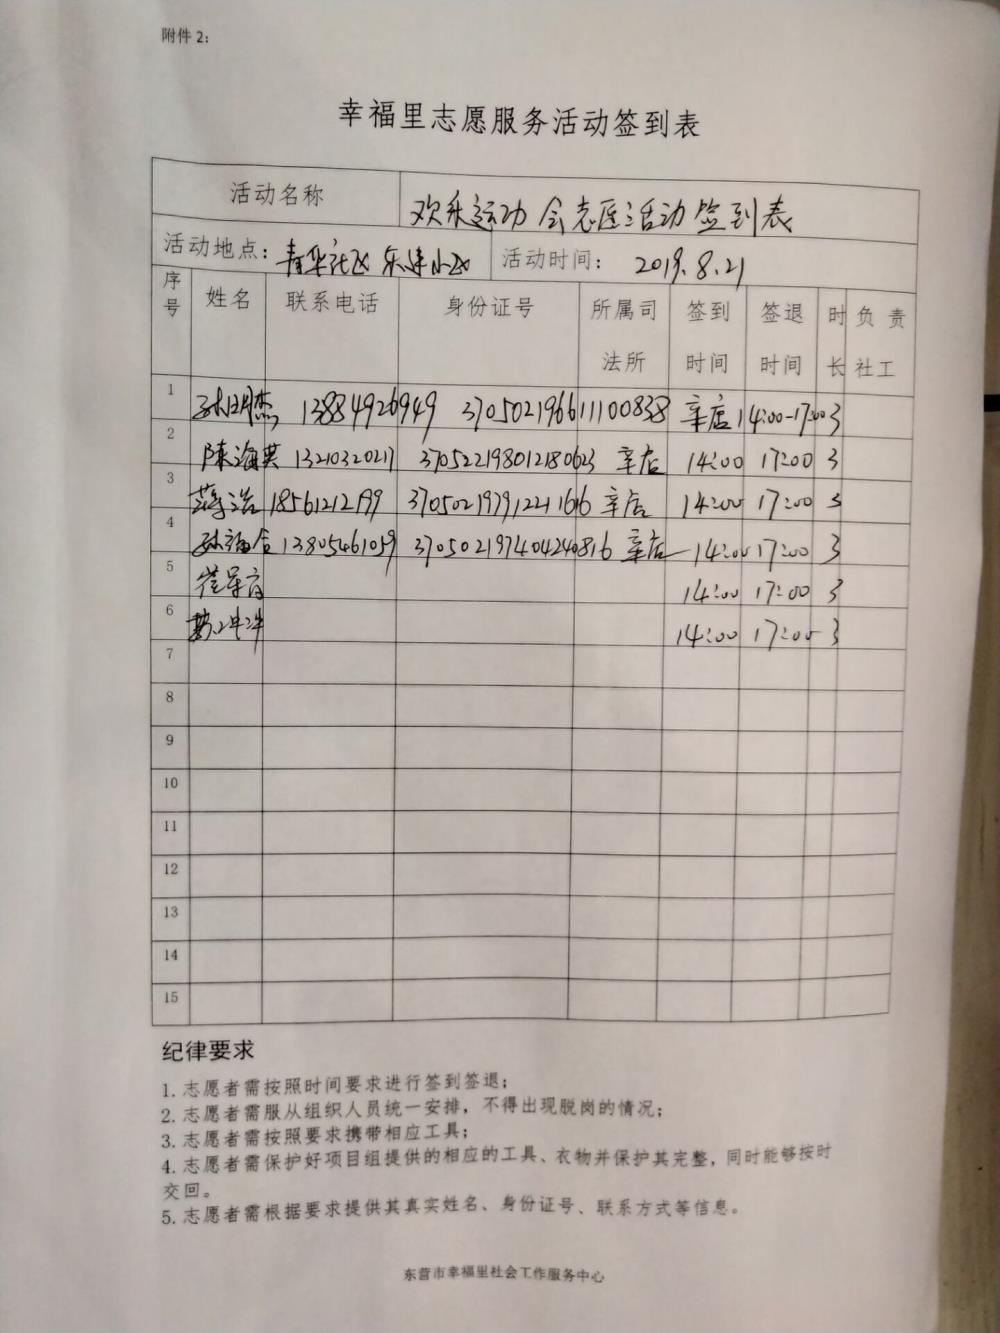 附件 2：
幸福里志愿服务活动签到表
活动名称 欢乐运动会志愿活动签到表
活动地点：青华社区 小区 活动时间： 2019.8.21
序号 姓名 联系电话 身份证号 所属司法所 签到时间 签退时间 时长 负责社工
1 13884926949 370502196611100838 辛店 14:00-17:00 3
2 陈海英 13210320217 370522198012180623 辛店 14:00 17:00 3
3 蒋浩 18561212199 370502197912241616 辛店 14:00 17:00 3
4 孙 13805461059 370502197404240816 辛店 14:00 17:00 3
5 崔 14:00 17:00 3
6 14:00 17:00 3
7
8
9
10
11
12
13
14
15
纪律要求
1. 志愿者需按照时间要求进行签到签退；
2. 志愿者需服从组织人员统一安排，不得出现脱岗的情况；
3. 志愿者需按照要求携带相应工具；
4. 志愿者需保护好项目组提供的相应的工具、衣物并保护其完整，同时能够按时
交回。
5. 志愿者需根据要求提供其真实姓名、身份证号、联系方式等信息。
东营市幸福里社会工作服务中心